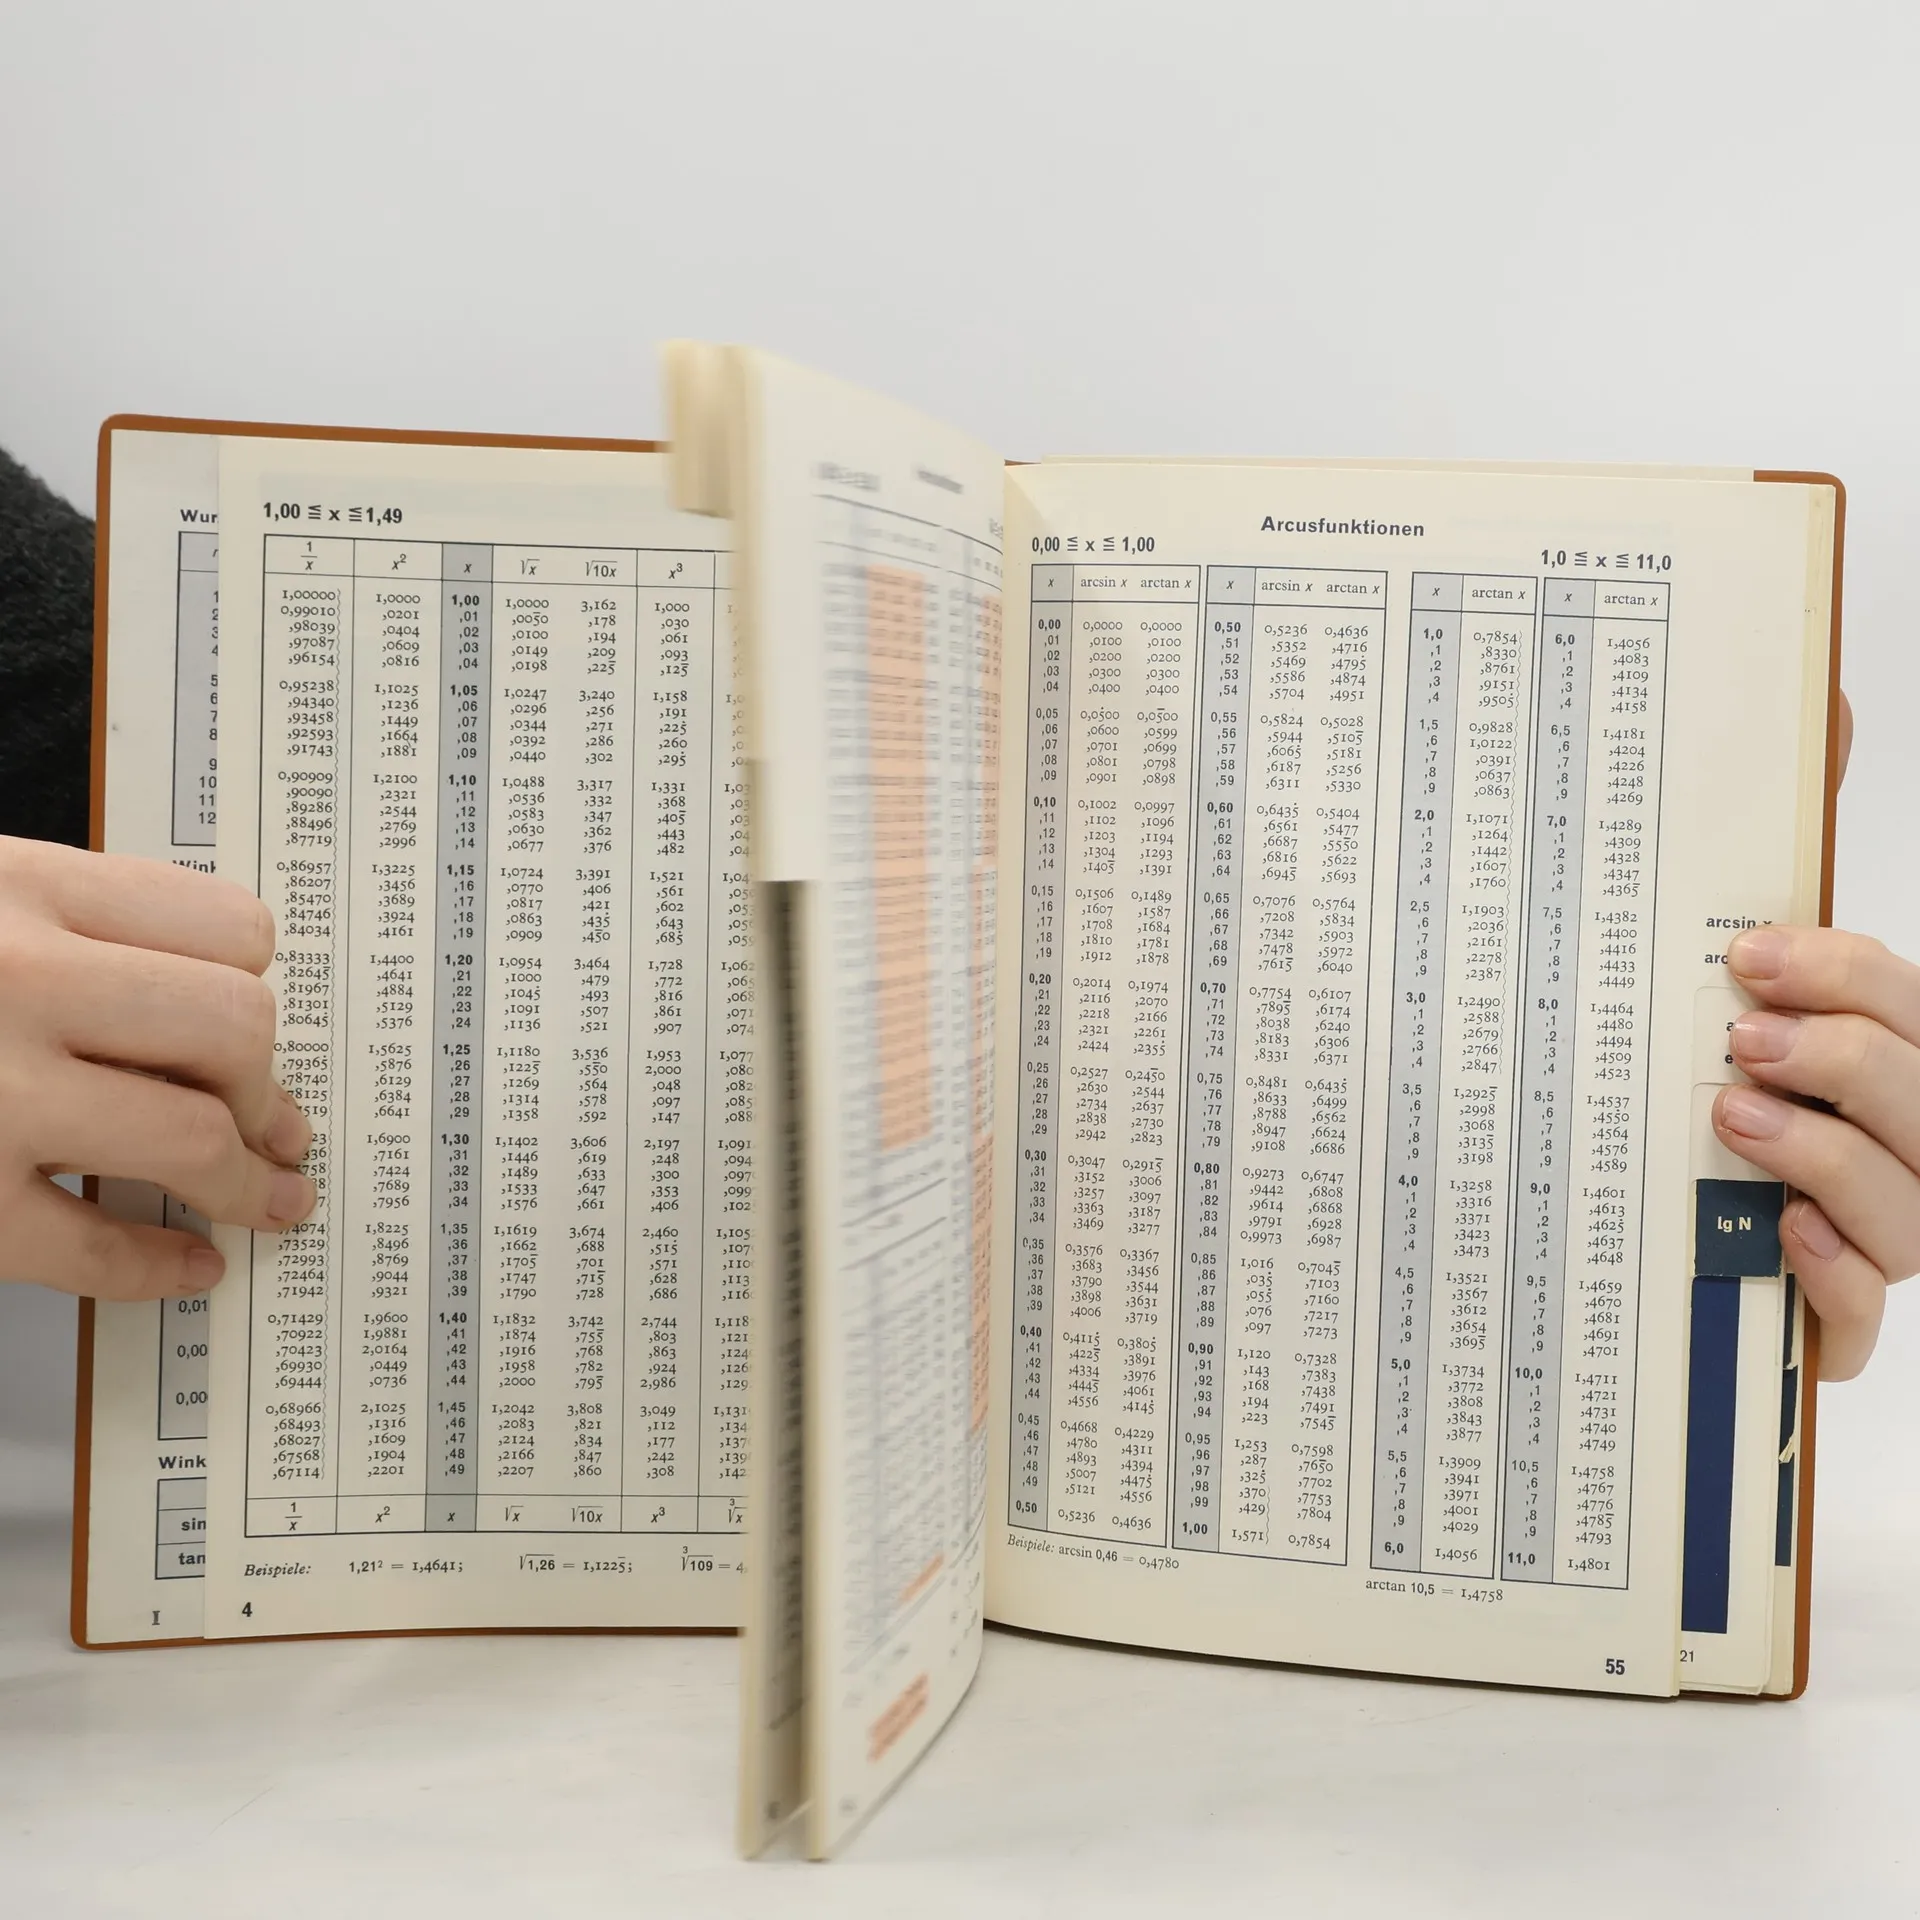 1
2
3
4
5
6
7
8
9
10
11
12
sin
tan
I
1,00 ≦ x ≦ 1,49
1/x x² x √x √10x x³
1,00000 1,0000 1,00 1,0000 3,162 1,000
0,99010 ,0201 ,01 ,0050 ,178 ,030
,98039 ,0404 ,02 ,0100 ,194 ,061
,97087 ,0609 ,03 ,0149 ,209 ,093
,96154 ,0816 ,04 ,0198 ,225 ,125
0,95238 1,1025 1,05 1,0247 3,240 1,158
,94340 ,1236 ,06 ,0296 ,256 ,191
,93458 ,1449 ,07 ,0344 ,271 ,225
,92593 ,1664 ,08 ,0392 ,286 ,260
,91743 ,1881 ,09 ,0440 ,302 ,295
0,90909 1,2100 1,10 1,0488 3,317 1,331
,90090 ,2321 ,11 ,0536 ,332 ,368
,89286 ,2544 ,12 ,0583 ,347 ,405
,88496 ,2769 ,13 ,0630 ,362 ,443
,87719 ,2996 ,14 ,0677 ,376 ,482
0,86957 1,3225 1,15 1,0724 3,391 1,521
,86207 ,3456 ,16 ,0770 ,406 ,561
,85470 ,3689 ,17 ,0817 ,421 ,602
,84746 ,3924 ,18 ,0863 ,435 ,643
,84034 ,4161 ,19 ,0909 ,450 ,685
0,83333 1,4400 1,20 1,0954 3,464 1,728
,82645 ,4641 ,21 ,1000 ,479 ,772
,81967 ,4884 ,22 ,1045 ,493 ,816
,81301 ,5129 ,23 ,1091 ,507 ,861
,80645 ,5376 ,24 ,1136 ,521 ,907
0,80000 1,5625 1,25 1,1180 3,536 1,953
,79365 ,5876 ,26 ,1225 ,550 2,000
,78740 ,6129 ,27 ,1269 ,564 ,048
,6384 ,28 ,1314 ,578 ,097
,6641 ,29 ,1358 ,592 ,147
1,6900 1,30 1,1402 3,606 2,197
,7161 ,31 ,1446 ,619 ,248
,7424 ,32 ,1489 ,633 ,300
,7689 ,33 ,1533 ,647 ,353
,7956 ,34 ,1576 ,661 ,406
1,8225 1,35 1,1619 3,674 2,460
,73529 ,8496 ,36 ,1662 ,688 ,515
,72993 ,8769 ,37 ,1705 ,701 ,571
,72464 ,9044 ,38 ,1747 ,715 ,628
,71942 ,9321 ,39 ,1790 ,728 ,686
0,71429 1,9600 1,40 1,1832 3,742 2,744
,70922 1,9881 ,41 ,1874 ,755 ,803
,70423 2,0164 ,42 ,1916 ,768 ,863
,69930 ,0449 ,43 ,1958 ,782 ,924
,69444 ,0736 ,44 ,2000 ,795 2,986
0,68966 2,1025 1,45 1,2042 3,808 3,049
,68493 ,1316 ,46 ,2083 ,821 ,112
,68027 ,1609 ,47 ,2124 ,834 ,177
,67568 ,1904 ,48 ,2166 ,847 ,242
,67114 ,2201 ,49 ,2207 ,860 ,308
1/x x² x √x √10x x³ ³√x
Beispiele: 1,21² = 1,4641; √1,26 = 1,1225; ³√109 = 4,
4
Arcusfunktionen
0,00 ≦ x ≦ 1,00 1,0 ≦ x ≦ 11,0
x arcsin x arctan x x arcsin x arctan x x arctan x x arctan x
0,00 0,0000 0,0000 0,50 0,5236 0,4636 1,0 0,7854 6,0 1,4056
,01 ,0100 ,0100 ,51 ,5352 ,4716 ,1 ,8330 ,1 ,4083
,02 ,0200 ,0200 ,52 ,5469 ,4795 ,2 ,8761 ,2 ,4109
,03 ,0300 ,0300 ,53 ,5586 ,4874 ,3 ,9151 ,3 ,4134
,04 ,0400 ,0400 ,54 ,5704 ,4951 ,4 ,9505 ,4 ,4158
0,05 0,0500 0,0500 0,55 0,5824 0,5028 1,5 0,9828 6,5 1,4181
,06 ,0600 ,0599 ,56 ,5944 ,5105 ,6 1,0122 ,6 ,4204
,07 ,0701 ,0699 ,57 ,6065 ,5181 ,7 ,0391 ,7 ,4226
,08 ,0801 ,0798 ,58 ,6187 ,5256 ,8 ,0637 ,8 ,4248
,09 ,0901 ,0898 ,59 ,6311 ,5330 ,9 ,0863 ,9 ,4269
0,10 0,1002 0,0997 0,60 0,6435 0,5404 2,0 1,1071 7,0 1,4289
,11 ,1102 ,1096 ,61 ,6561 ,5477 ,1 ,1264 ,1 ,4309
,12 ,1203 ,1194 ,62 ,6687 ,5550 ,2 ,1442 ,2 ,4328
,13 ,1304 ,1293 ,63 ,6816 ,5622 ,3 ,1607 ,3 ,4347
,14 ,1405 ,1391 ,64 ,6945 ,5693 ,4 ,1760 ,4 ,4365
0,15 0,1506 0,1489 0,65 0,7076 0,5764 2,5 1,1903 7,5 1,4382
,16 ,1607 ,1587 ,66 ,7208 ,5834 ,6 ,2036 ,6 ,4400
,17 ,1708 ,1684 ,67 ,7342 ,5903 ,7 ,2161 ,7 ,4416
,18 ,1810 ,1781 ,68 ,7478 ,5972 ,8 ,2278 ,8 ,4433
,19 ,1912 ,1878 ,69 ,7615 ,6040 ,9 ,2387 ,9 ,4449
0,20 0,2014 0,1974 0,70 0,7754 0,6107 3,0 1,2490 8,0 1,4464
,21 ,2116 ,2070 ,71 ,7895 ,6174 ,1 ,2588 ,1 ,4480
,22 ,2218 ,2166 ,72 ,8038 ,6240 ,2 ,2679 ,2 ,4494
,23 ,2321 ,2261 ,73 ,8183 ,6306 ,3 ,2766 ,3 ,4509
,24 ,2424 ,2355 ,74 ,8331 ,6371 ,4 ,2847 ,4 ,4523
0,25 0,2527 0,2450 0,75 0,8481 0,6435 3,5 1,2925 8,5 1,4537
,26 ,2630 ,2544 ,76 ,8633 ,6499 ,6 ,2998 ,6 ,4550
,27 ,2734 ,2637 ,77 ,8788 ,6562 ,7 ,3068 ,7 ,4564
,28 ,2838 ,2730 ,78 ,8947 ,6624 ,8 ,3135 ,8 ,4576
,29 ,2942 ,2823 ,79 ,9108 ,6686 ,9 ,3198 ,9 ,4589
0,30 0,3047 0,2915 0,80 0,9273 0,6747 4,0 1,3258 9,0 1,4601
,31 ,3152 ,3006 ,81 ,9442 ,6808 ,1 ,3316 ,1 ,4613
,32 ,3257 ,3097 ,82 ,9614 ,6868 ,2 ,3371 ,2 ,4625
,33 ,3363 ,3187 ,83 ,9791 ,6928 ,3 ,3423 ,3 ,4637
,34 ,3469 ,3277 ,84 0,9973 ,6987 ,4 ,3473 ,4 ,4648
0,35 0,3576 0,3367 0,85 1,016 0,7045 4,5 1,3521 9,5 1,4659
,36 ,3683 ,3456 ,86 ,035 ,7103 ,6 ,3567 ,6 ,4670
,37 ,3790 ,3544 ,87 ,055 ,7160 ,7 ,3612 ,7 ,4681
,38 ,3898 ,3631 ,88 ,076 ,7217 ,8 ,3654 ,8 ,4691
,39 ,4006 ,3719 ,89 ,097 ,7273 ,9 ,3695 ,9 ,4701
0,40 0,4115 0,3805 0,90 1,120 0,7328 5,0 1,3734 10,0 1,4711
,41 ,4225 ,3891 ,91 ,143 ,7383 ,1 ,3772 ,1 ,4721
,42 ,4334 ,3976 ,92 ,168 ,7438 ,2 ,3808 ,2 ,4731
,43 ,4445 ,4061 ,93 ,194 ,7491 ,3 ,3843 ,3 ,4740
,44 ,4556 ,4145 ,94 ,223 ,7545 ,4 ,3877 ,4 ,4749
0,45 0,4668 0,4229 0,95 1,253 0,7598 5,5 1,3909 10,5 1,4758
,46 ,4780 ,4311 ,96 ,287 ,7650 ,6 ,3941 ,6 ,4767
,47 ,4893 ,4394 ,97 ,325 ,7702 ,7 ,3971 ,7 ,4776
,48 ,5007 ,4475 ,98 ,370 ,7753 ,8 ,4001 ,8 ,4785
,49 ,5121 ,4556 ,99 ,429 ,7804 ,9 ,4029 ,9 ,4793
0,50 0,5236 0,4636 1,00 1,571 0,7854 6,0 1,4056 11,0 1,4801
Beispiele: arcsin 0,46 = 0,4780 arctan 10,5 = 1,4758
55
arcsin x
lg N
21